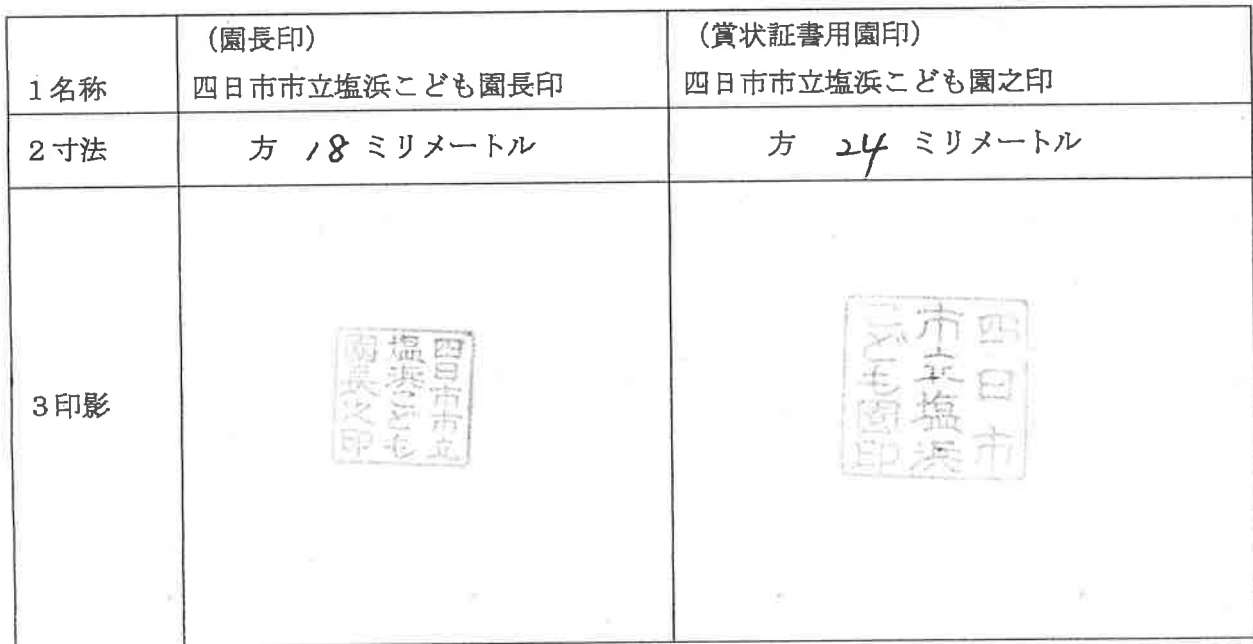 (園長印)
(賞状証書用園印)
1名称
四日市市立塩浜こども園長印
四日市市立塩浜こども園之印
2寸法
方 18 ミリメートル
方 24 ミリメートル
3印影
四日市市立
塩浜こども
園長之印
四日市
市立塩浜
こども園印